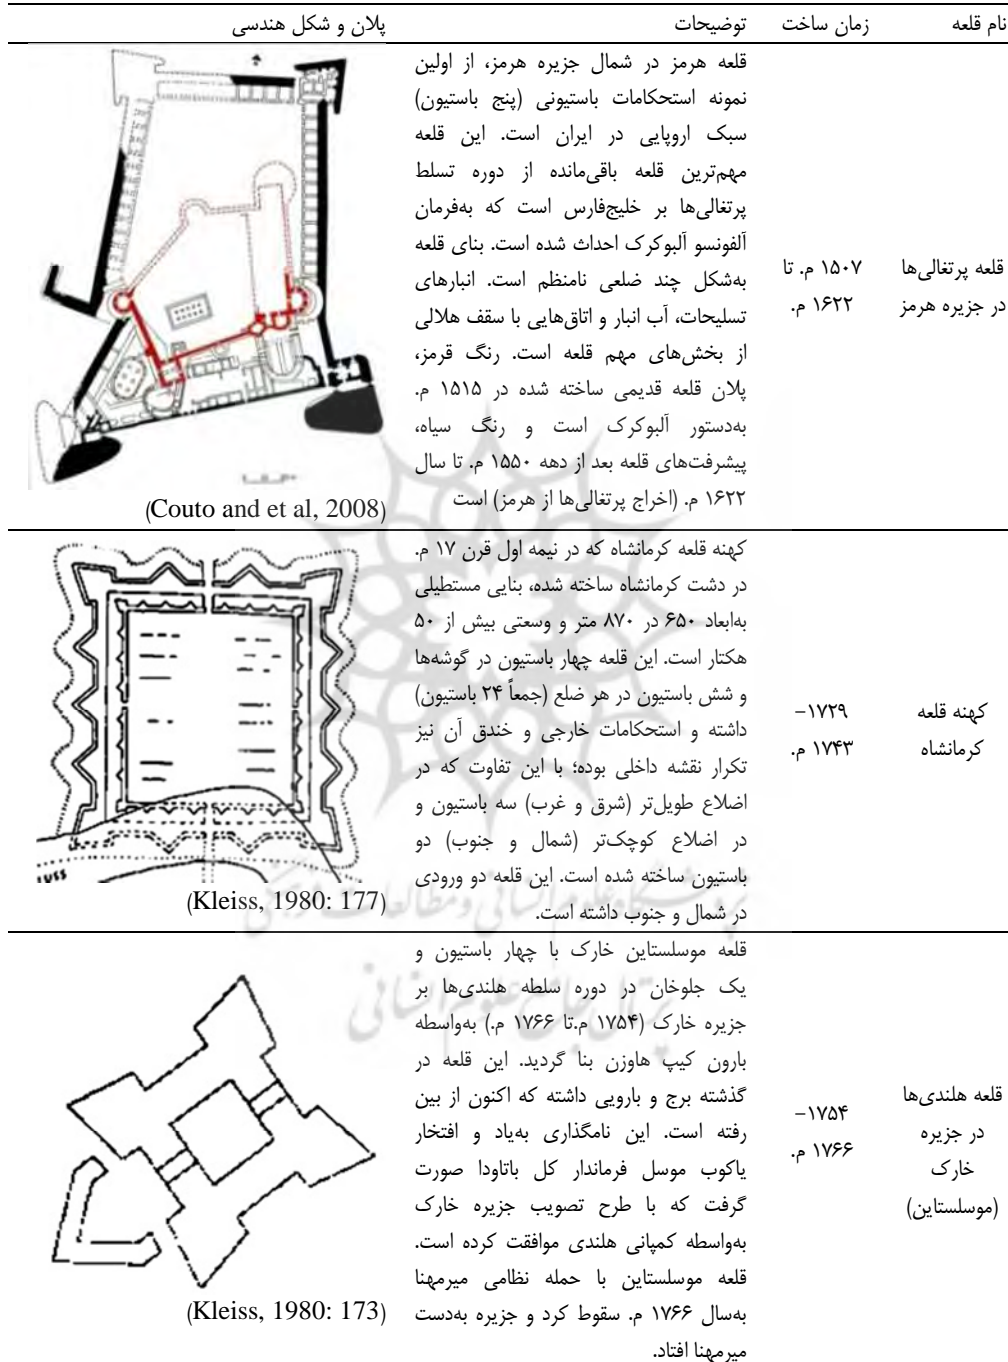 نام قلعه	زمان ساخت	توضیحات	پلان و شکل هندسی
قلعه پرتغالی‌ها
در جزیره هرمز
۱۵۰۷ م. تا
۱۶۲۲ م.
قلعه هرمز در شمال جزیره هرمز، از اولین
نمونه استحکامات باستیونی (پنج باستیون)
سبک اروپایی در ایران است. این قلعه
مهم‌ترین قلعه باقی‌مانده از دوره تسلط
پرتغالی‌ها بر خلیج‌فارس است که به‌فرمان
آلفونسو آلبوکرک احداث شده است. بنای قلعه
به‌شکل چند ضلعی نامنظم است. انبارهای
تسلیحات، آب انبار و اتاق‌هایی با سقف هلالی
از بخش‌های مهم قلعه است. رنگ قرمز،
پلان قلعه قدیمی ساخته شده در ۱۵۱۵ م.
به‌دستور آلبوکرک است و رنگ سیاه،
پیشرفت‌های قلعه بعد از دهه ۱۵۵۰ م. تا سال
۱۶۲۲ م. (اخراج پرتغالی‌ها از هرمز) است
(Couto and et al, 2008)
کهنه قلعه
کرمانشاه
۱۷۲۹–
۱۷۴۳ م.
کهنه قلعه کرمانشاه که در نیمه اول قرن ۱۷ م.
در دشت کرمانشاه ساخته شده، بنایی مستطیلی
به‌ابعاد ۶۵۰ در ۸۷۰ متر و وسعتی بیش از ۵۰
هکتار است. این قلعه چهار باستیون در گوشه‌ها
و شش باستیون در هر ضلع (جمعاً ۲۴ باستیون)
داشته و استحکامات خارجی و خندق آن نیز
تکرار نقشه داخلی بوده؛ با این تفاوت که در
اضلاع طویل‌تر (شرق و غرب) سه باستیون و
در اضلاع کوچک‌تر (شمال و جنوب) دو
باستیون ساخته شده است. این قلعه دو ورودی
در شمال و جنوب داشته است.
LUSS
(Kleiss, 1980: 177)
قلعه هلندی‌ها
در جزیره
خارک
(موسلستاین)
۱۷۵۴–
۱۷۶۶ م.
قلعه موسلستاین خارک با چهار باستیون و
یک جلوخان در دوره سلطه هلندی‌ها بر
جزیره خارک (۱۷۵۴ م.تا ۱۷۶۶ م.) به‌واسطه
بارون کیپ هاوزن بنا گردید. این قلعه در
گذشته برج و بارویی داشته که اکنون از بین
رفته است. این نامگذاری به‌یاد و افتخار
یاکوب موسل فرماندار کل باتاودا صورت
گرفت که با طرح تصویب جزیره خارک
به‌واسطه کمپانی هلندی موافقت کرده است.
قلعه موسلستاین با حمله نظامی میرمهنا
به‌سال ۱۷۶۶ م. سقوط کرد و جزیره به‌دست
میرمهنا افتاد.
(Kleiss, 1980: 173)
پژوهشگاه علوم انسانی و مطالعات فرهنگی
پرتال جامع علوم انسانی